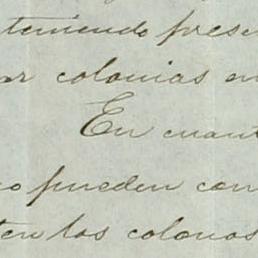 teniendo prese
ar colonias en
En cuant
o pueden con
ten los colonos